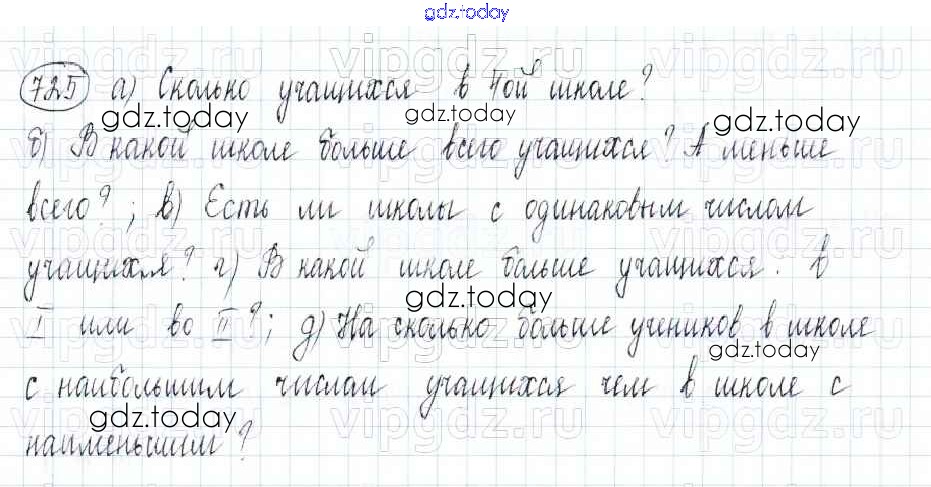 gdz.today
725 а) Сколько учащихся в 4ой школе?
gdz.today gdz.today
б) В какой школе больше всего учащихся? А меньше
всего?; в) Есть ли школы с одинаковым числом
учащихся? г) В какой школе больше учащихся. в
gdz.today
I или во II?; д) На сколько больше учеников в школе
gdz.today
с наибольшим числом учащихся чем в школе с
gdz.today
наименьшим?
vipgdz.ru